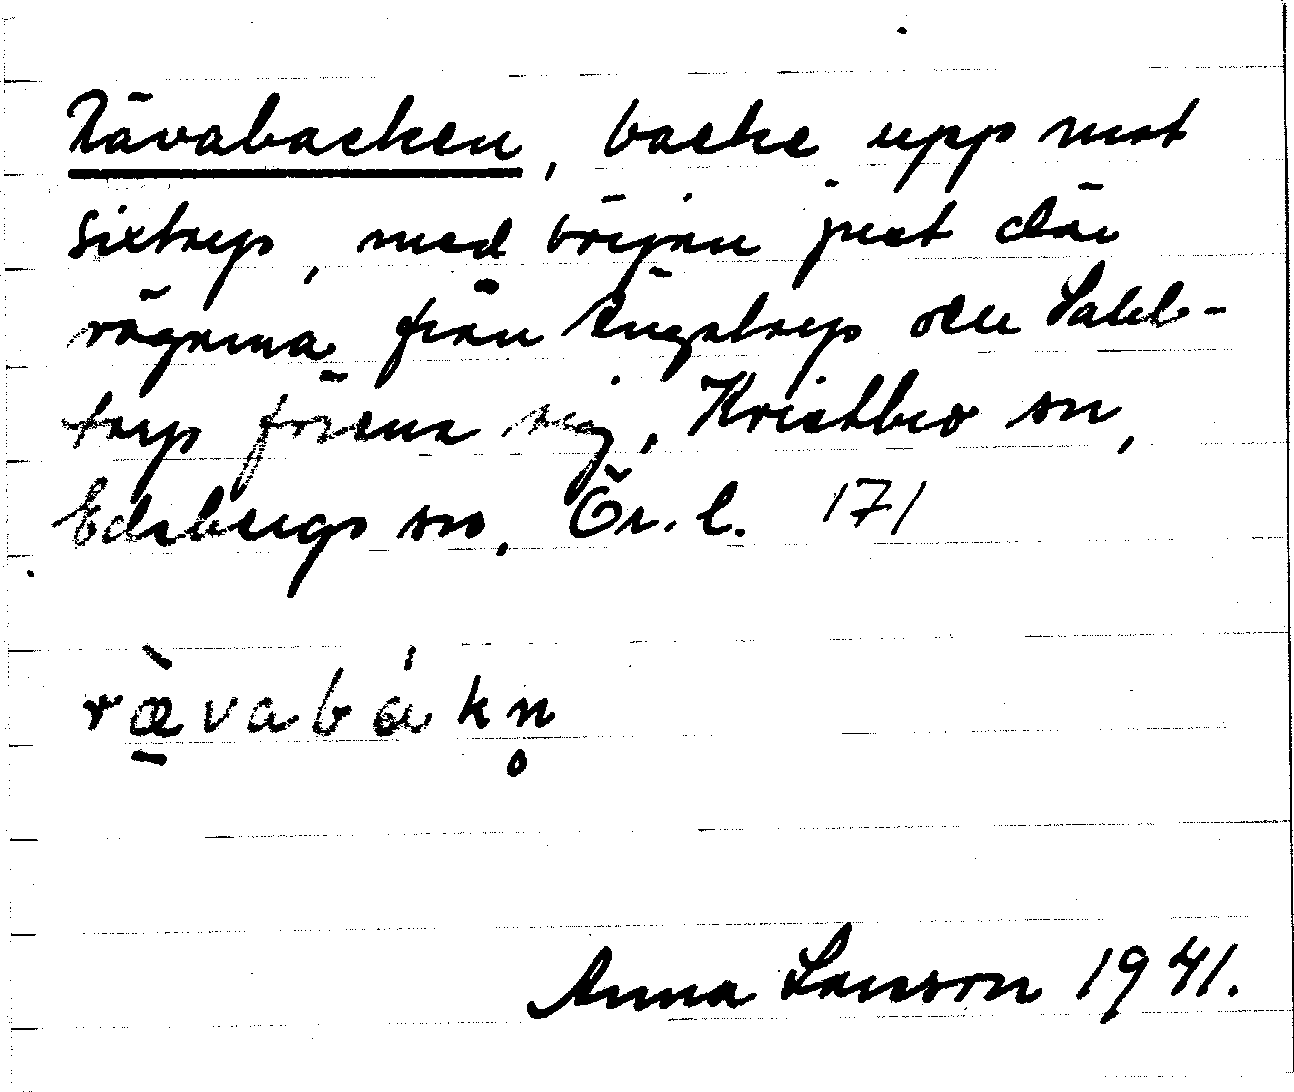 Rävabacken, backe upp mot
Sixtorp, med början just där
vägarna från Ängstorp och Sahl-
torp förena sig, Kvistbro sn,
Edsbergs hd, Ör. l. 171
rævabákn̥
Anna Larsson 1941.